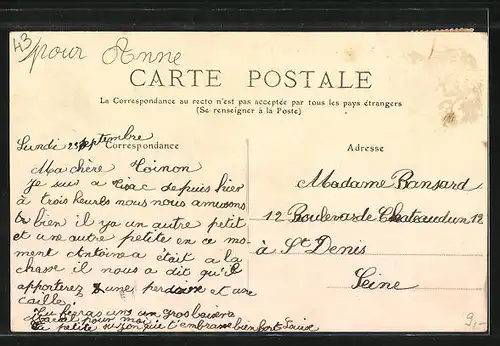 43
pour Anne
CARTE POSTALE
La Correspondance au recto n'est pas acceptée par tous les pays étrangers
(Se renseigner à la Poste)
Lundi 25 septembre
Correspondance
Adresse
Ma chère Toinon
je sui a depuis hier
à trois heures nous nous amusons
bien il y a un autre petit
et une autre petite en ce mo
ment Antoine a était a la
chasse il nous a dit qu'il
apportera une perdrise et une
cailles.
Tu feras un gros
pour moi
ta petite qui t'embrasse bien fort Louise
Madame Bansard
12 Boulevard de Chateaudun 12
à St Denis
Seine
9,-